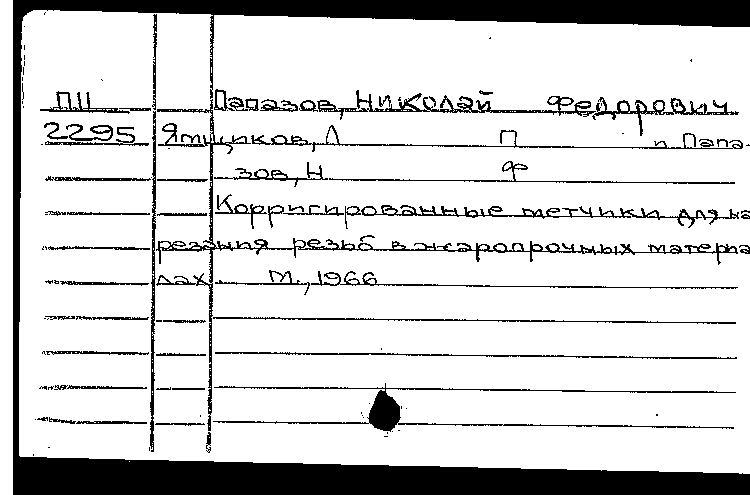 П11 Папазов, Николай Федорович
2295 Ямщиков, Л П и Папа-
зов, Н Ф
Корригированные метчики для на
резания резьб в жаропрочных материа
лах. М., 1966